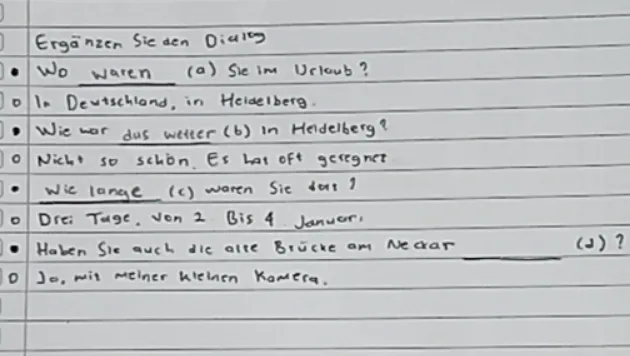 Ergänzen Sie den Dialog
Wo waren (a) Sie im Urlaub?
In Deutschland, in Heidelberg.
Wie war das wetter (b) in Heidelberg?
Nicht so schön. Es hat oft geregnet
Wie lange (c) waren Sie dort?
Drei Tage, von 2 Bis 4 Januari
Haben Sie auch die alte Brücke am Neckar ______ (d)?
Ja, mit meiner kleinen Kamera.